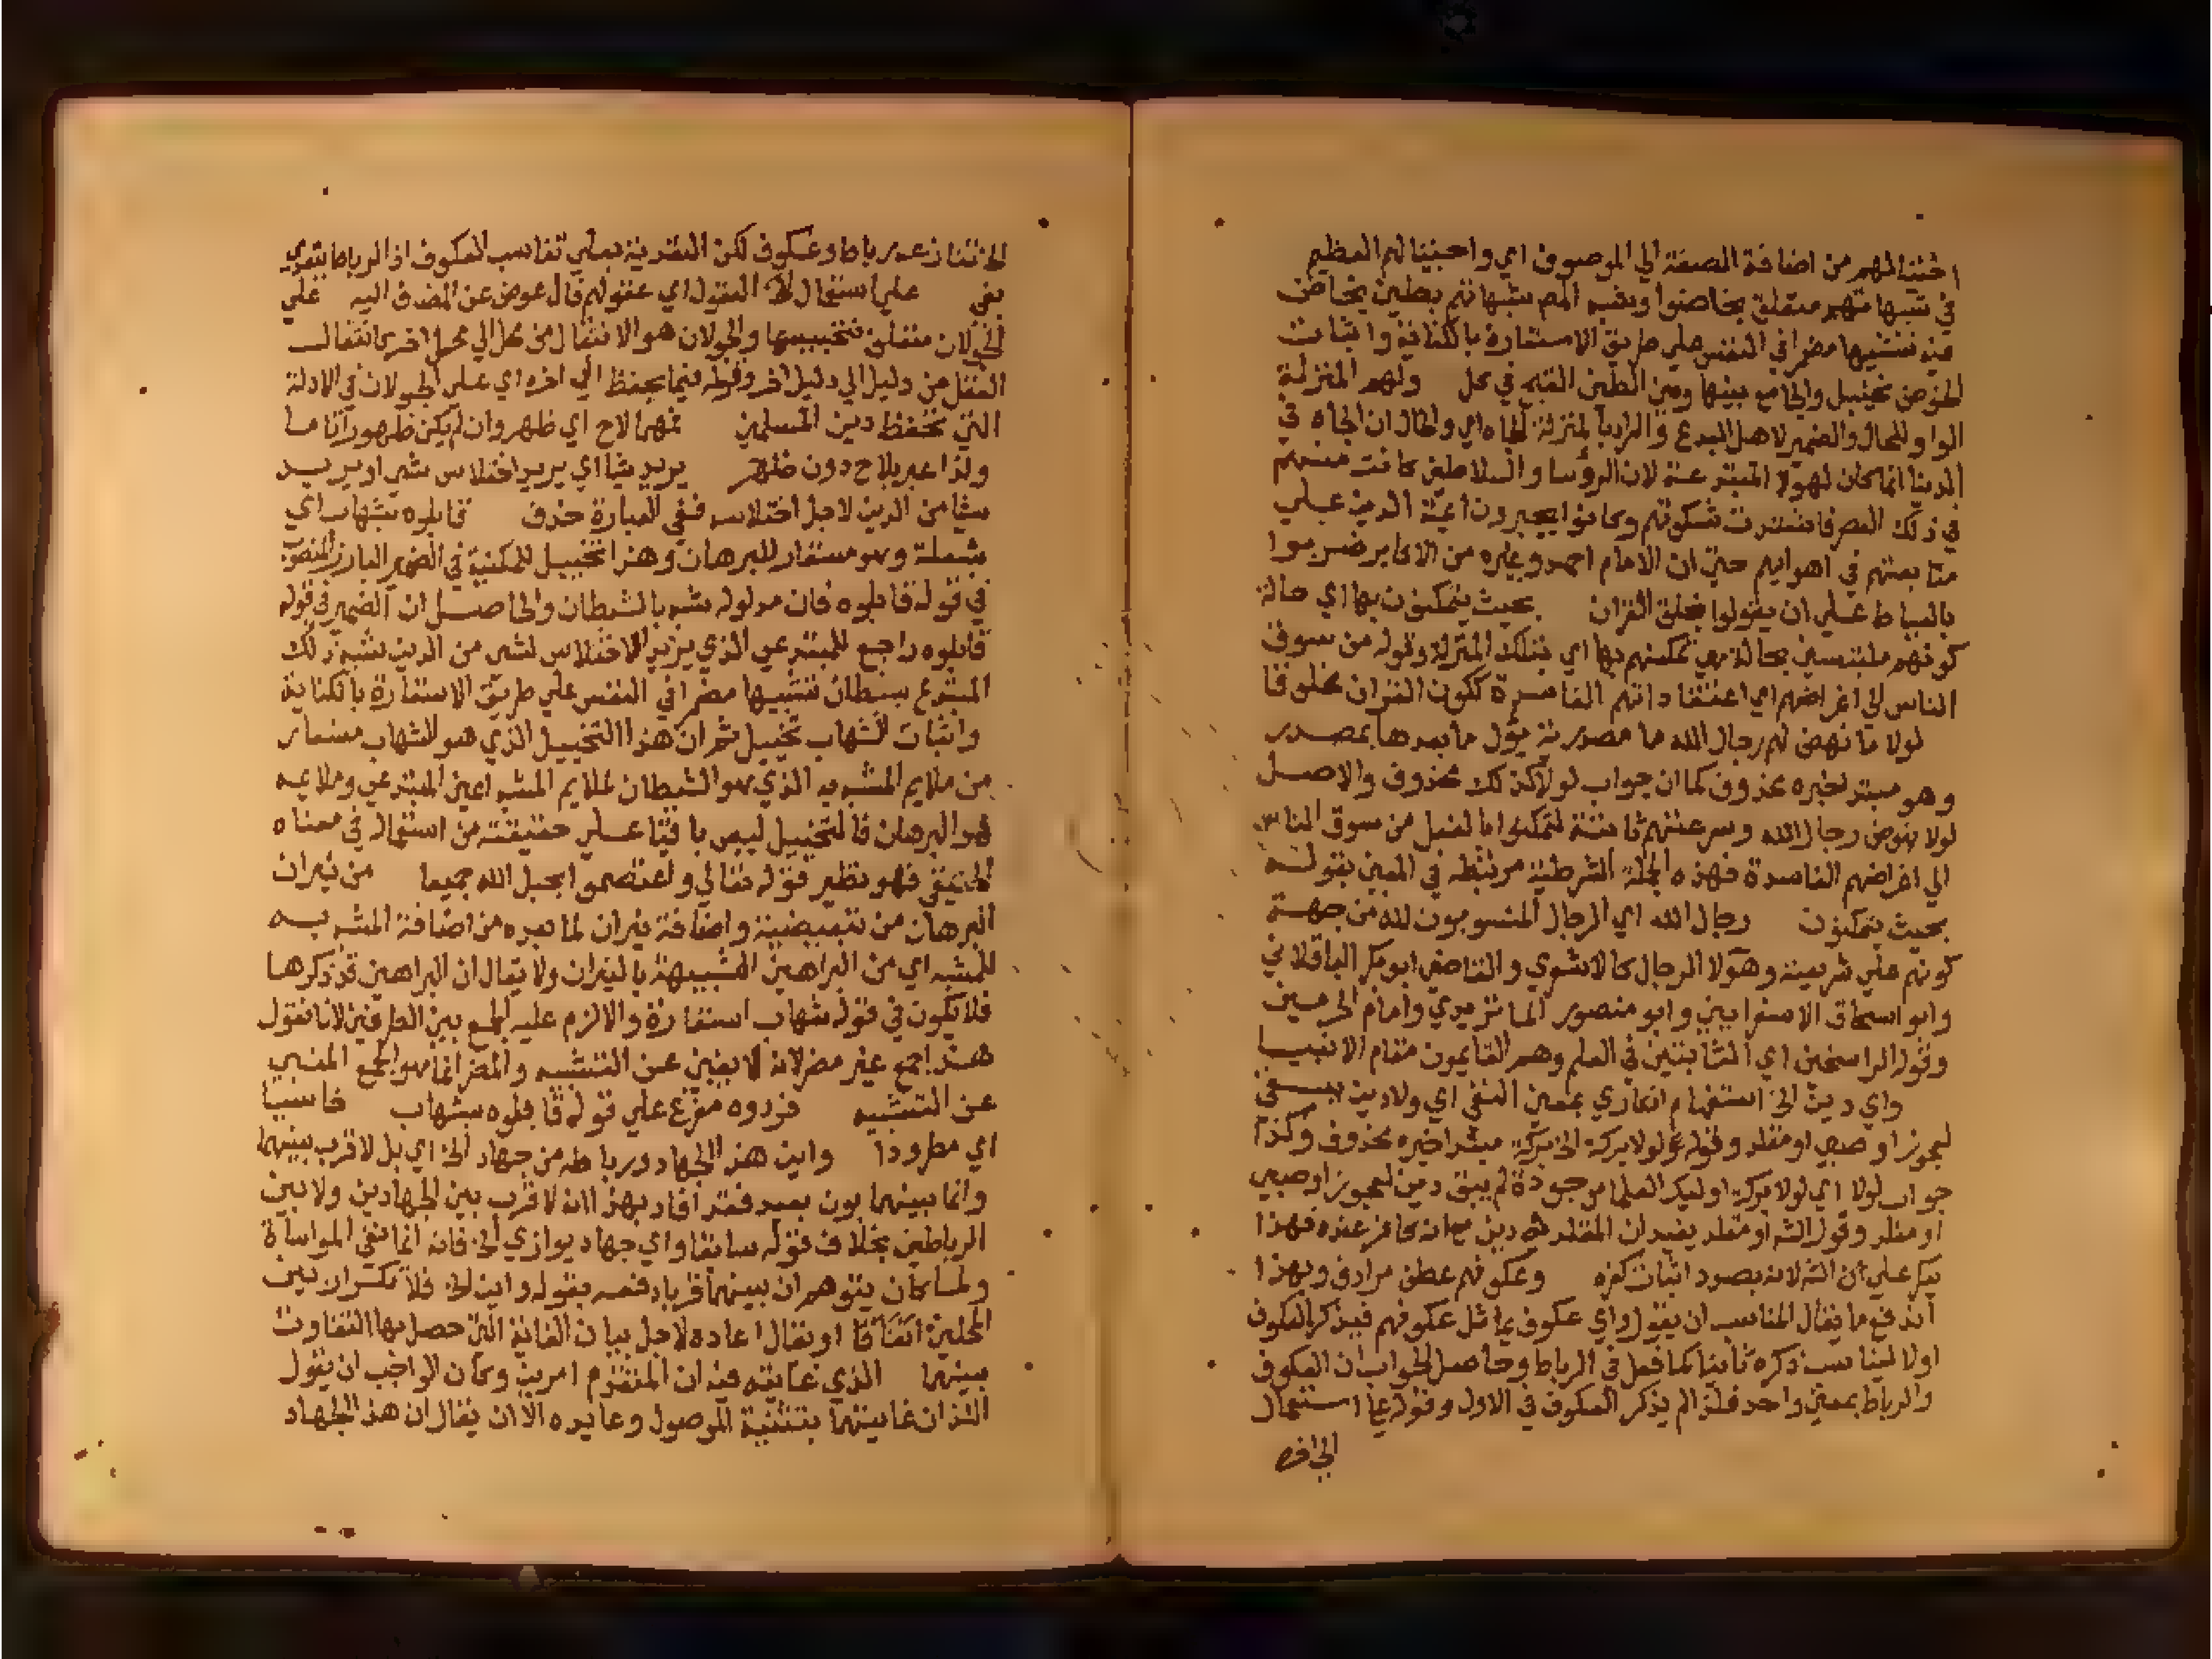 اختنالهم من اضافة الصفة الي الموصوف اي واحبنا لهم العظيم
في شبهاتهم متعلق بخاضوا وشبه الم شبهاتهم بطين يخاض
فيه تشبيها مضمرا في النفس علي طريق الاستعارة بالكناية واثبات
الخوض تخييل والجامع بينها وبين الطين القبح في كل ولهم المنزلة
الواو للحال والضمير لاهل البدع والمراد بالمنزلة الجاه اي والحال ان الجاه في
الدنيا انما كان لهولا المبتدعة لان الرؤسا والسلاطين كانت منهم
في ذلك العصر فاشتدت شكوتهم وكانوا يجبرون ايمة الدين علي
متابعتهم في اهوايهم حتي ان الامام احمد وغيره من الاكابر ضربوا
بالسياط علي ان يقولوا بخلق القران بحيث يتمكنون بها اي حالة
كونهم ملتبسين بحالة هي تمكينهم بها اي بتلك المنزلة وقوله من سوق
الناس الي اغراضهم اي اعتقاداتهم الفاسدة ككون القران مخلوقا
لولا ما نهض لهم رجال الله ما مصدرية يؤل ما بعدها بمصدر
وهو مبتدا خبره محذوف كما ان جواب لولا كذلك محذوف والاصل
لولا نهوض رجال الله وسرعتهم ثابتة لتمكنوا بالفعل من سوق الناس
الي اغراضهم الفاسدة فهذه الجملة الشرطية مرتبطة في المعني بقوله
بحيث يتمكنون رجال الله اي الرجال المنسوبون لله من جهة
كونهم علي شريعته وهولا الرجال كالاشعري والقاضي ابو بكر الباقلاني
وابو اسحاق الاسفرايني وابو منصور الماتريدي وامام الحرمين
وقوله الراسخين اي الثابتين في العلم وهم القايمون مقام الانبيا
واي دين الخ استفهام انكاري بمعني النفي اي ولا دين يبقي
لعجوز او صبي او مقلد وقوله لولا بركة الخ بركة مبتدا خبره محذوف وكذا
جواب لولا اي لولا بركة اوليك العلما موجودة لم يبق دين لعجوز او صبي
او مقلد وقوله او مقلد يفيد ان المقلد له دين مع انه كافر عنده فهذا
يعكر علي لانه بصدد اثبات كفره وعكوفهم عطف مرادف وبهذا
اندفع ما يقال المناسب ان يقول واي عكوف يماثل عكوفهم فيذكر العكوف
اولا ليناسب ذكره ثانيا كما فعل في الرباط وحاصل الجواب ان العكوف
والرباط بمعني واحد فلذا لم يذكر العكوف في الاول وقوله علي استعمال
الي اخره
رباط وعكوف لكن التقدير تعلي تناسب العكوف اذ الرباط يتعدي
بفي علي استعمال العقول اي عقولهم فال عوض عن المضاف اليه علي
الجولان متعلق بتحبيسها والجولان هو الانتقال من محل الي محل اخر كانتقال
العقل من دليل الي دليل اخر وقوله فيما يحفظ الي اخره اي علي الجولان في الادلة
التي تحفظ دين المسلمين مهما لاح اي ظهر وان لم يكن ظهورا تاما
ولذا عبر بلاح دون ظهر يريد شيا اي يريد اختلاس شي او يريد
شيا من الدين لاجل اختلاسه ففي العبارة حذف قابلوه بشهاب اي
شعلة وهو مستعار للبرهان وهذا تخييل للمكنية في الضمير البارز المنصوب
في قوله قابلوه فان مدلوله شبه بالشيطان والحاصل ان الضمير في قوله
قابلوه راجع للمبتدعي الذي يريد الاختلاس لشي من الدين شبه ذلك
المبتدع بشيطان تشبيها مضمرا في النفس علي طريق الاستعارة بالكناية
واثبات الشهاب تخييل ثم ان هذا التخييل الذي هو الشهاب مستعار
من ملايم المشبه به الذي هو الشيطان لملايم المشبه اعني المبتدعي وملايمه
هو البرهان فالتخييل ليس باقيا علي حقيقته من استعماله في معناه
الحقيقي فهو نظير قوله تعالي واعتصموا بحبل الله جميعا من نيران
البرهان من تبعيضية واضافة نيران لما بعده من اضافة المشبه به
للمشبه اي من البراهين الشبيهة بالنيران ولا يقال ان البراهين قد ذكرها
فلا يكون في قوله شهاب استعارة والا لزم عليه الجمع بين الطرفين لانا نقول
هذا جمع غير مضر لانه لا ينبي عن التشبيه والمضر انما هو الجمع المنبي
عن التشبيه فردوه مفرع علي قوله قابلوه بشهاب خاسيا
اي مطرودا واين هذا الجهاد ورباطه من جهاد الخ اي بل لا قرب بينهما
وانما بينهما بون بعيد فقد افاد بهذا انه لا قرب بين الجهادين ولا بين
الرباطين بخلاف قوله سابقا واي جهاد يوازي الخ فانه انما نفي المواساة
ولما كان يتوهم ان بينهما قربا دفعه بقوله واين الخ فلا تكرار بين
المحلين اتفاقا او يقال اعاده لاجل بيان الغاية التي حصل بها التفاوت
بينهما الذي غايته فيه ان المتقدم امرين وكان الواجب ان يقول
اللذان غايتهما بتثنية الموصول وعايده الا ان يقال ان هذا الجهاد